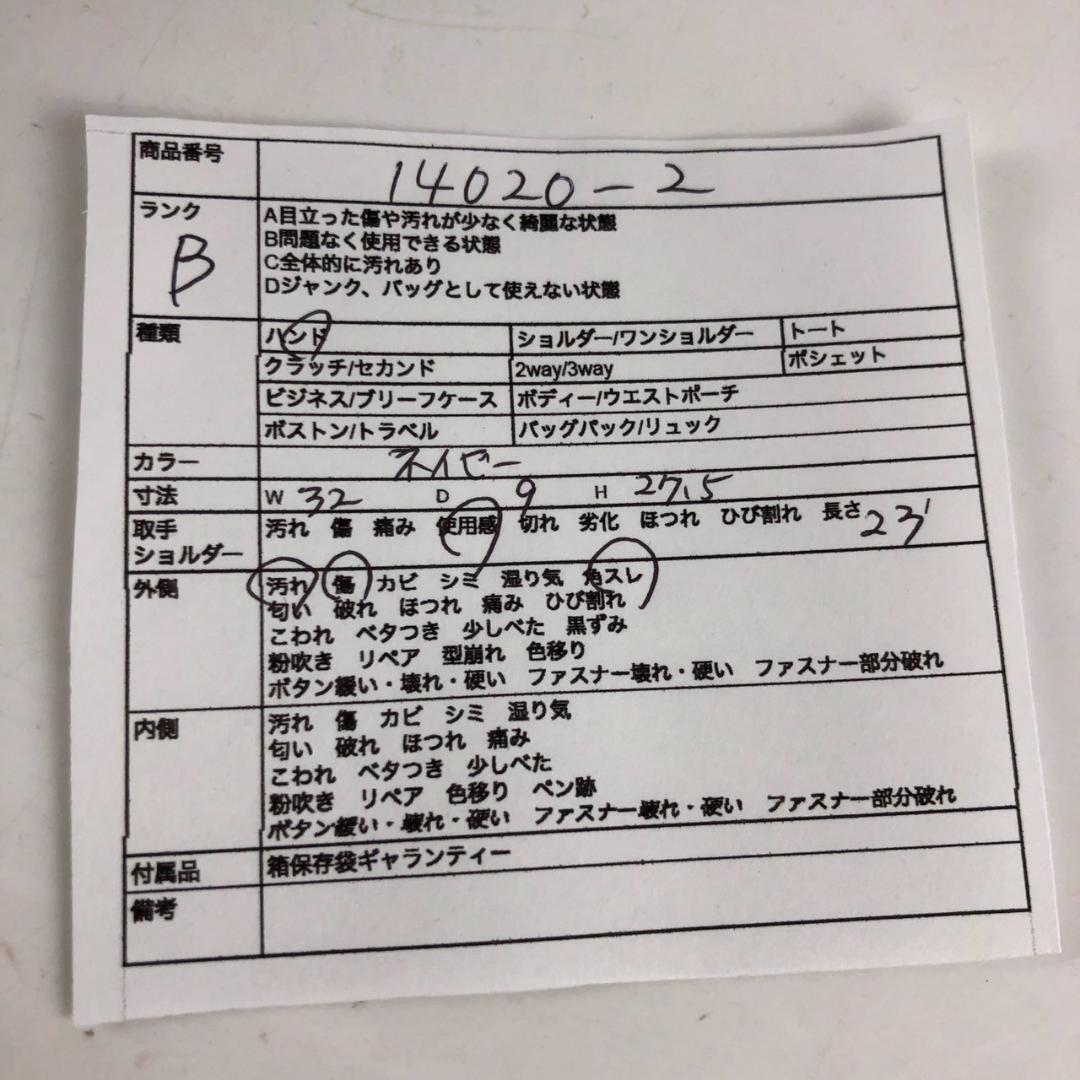 商品番号 14020-2
ランク B
A目立った傷や汚れが少なく綺麗な状態
B問題なく使用できる状態
C全体的に汚れあり
Dジャンク、バッグとして使えない状態
種類 ハンド ショルダー/ワンショルダー トート
クラッチ/セカンド 2way/3way ポシェット
ビジネス/ブリーフケース ボディー/ウエストポーチ
ボストン/トラベル バッグパック/リュック
カラー ネイビー
寸法 W 32 D 9 H 27.5
取手 汚れ 傷 痛み 使用感 切れ 劣化 ほつれ ひび割れ 長さ 23
ショルダー
外側 汚れ 傷 カビ シミ 湿り気 角スレ
匂い 破れ ほつれ 痛み ひび割れ
こわれ ベタつき 少しべた 黒ずみ
粉吹き リペア 型崩れ 色移り
ボタン緩い・壊れ・硬い ファスナー壊れ・硬い ファスナー部分破れ
内側 汚れ 傷 カビ シミ 湿り気
匂い 破れ ほつれ 痛み
こわれ ベタつき 少しべた
粉吹き リペア 色移り ペン跡
ボタン緩い・壊れ・硬い ファスナー壊れ・硬い ファスナー部分破れ
付属品 箱保存袋ギャランティー
備考